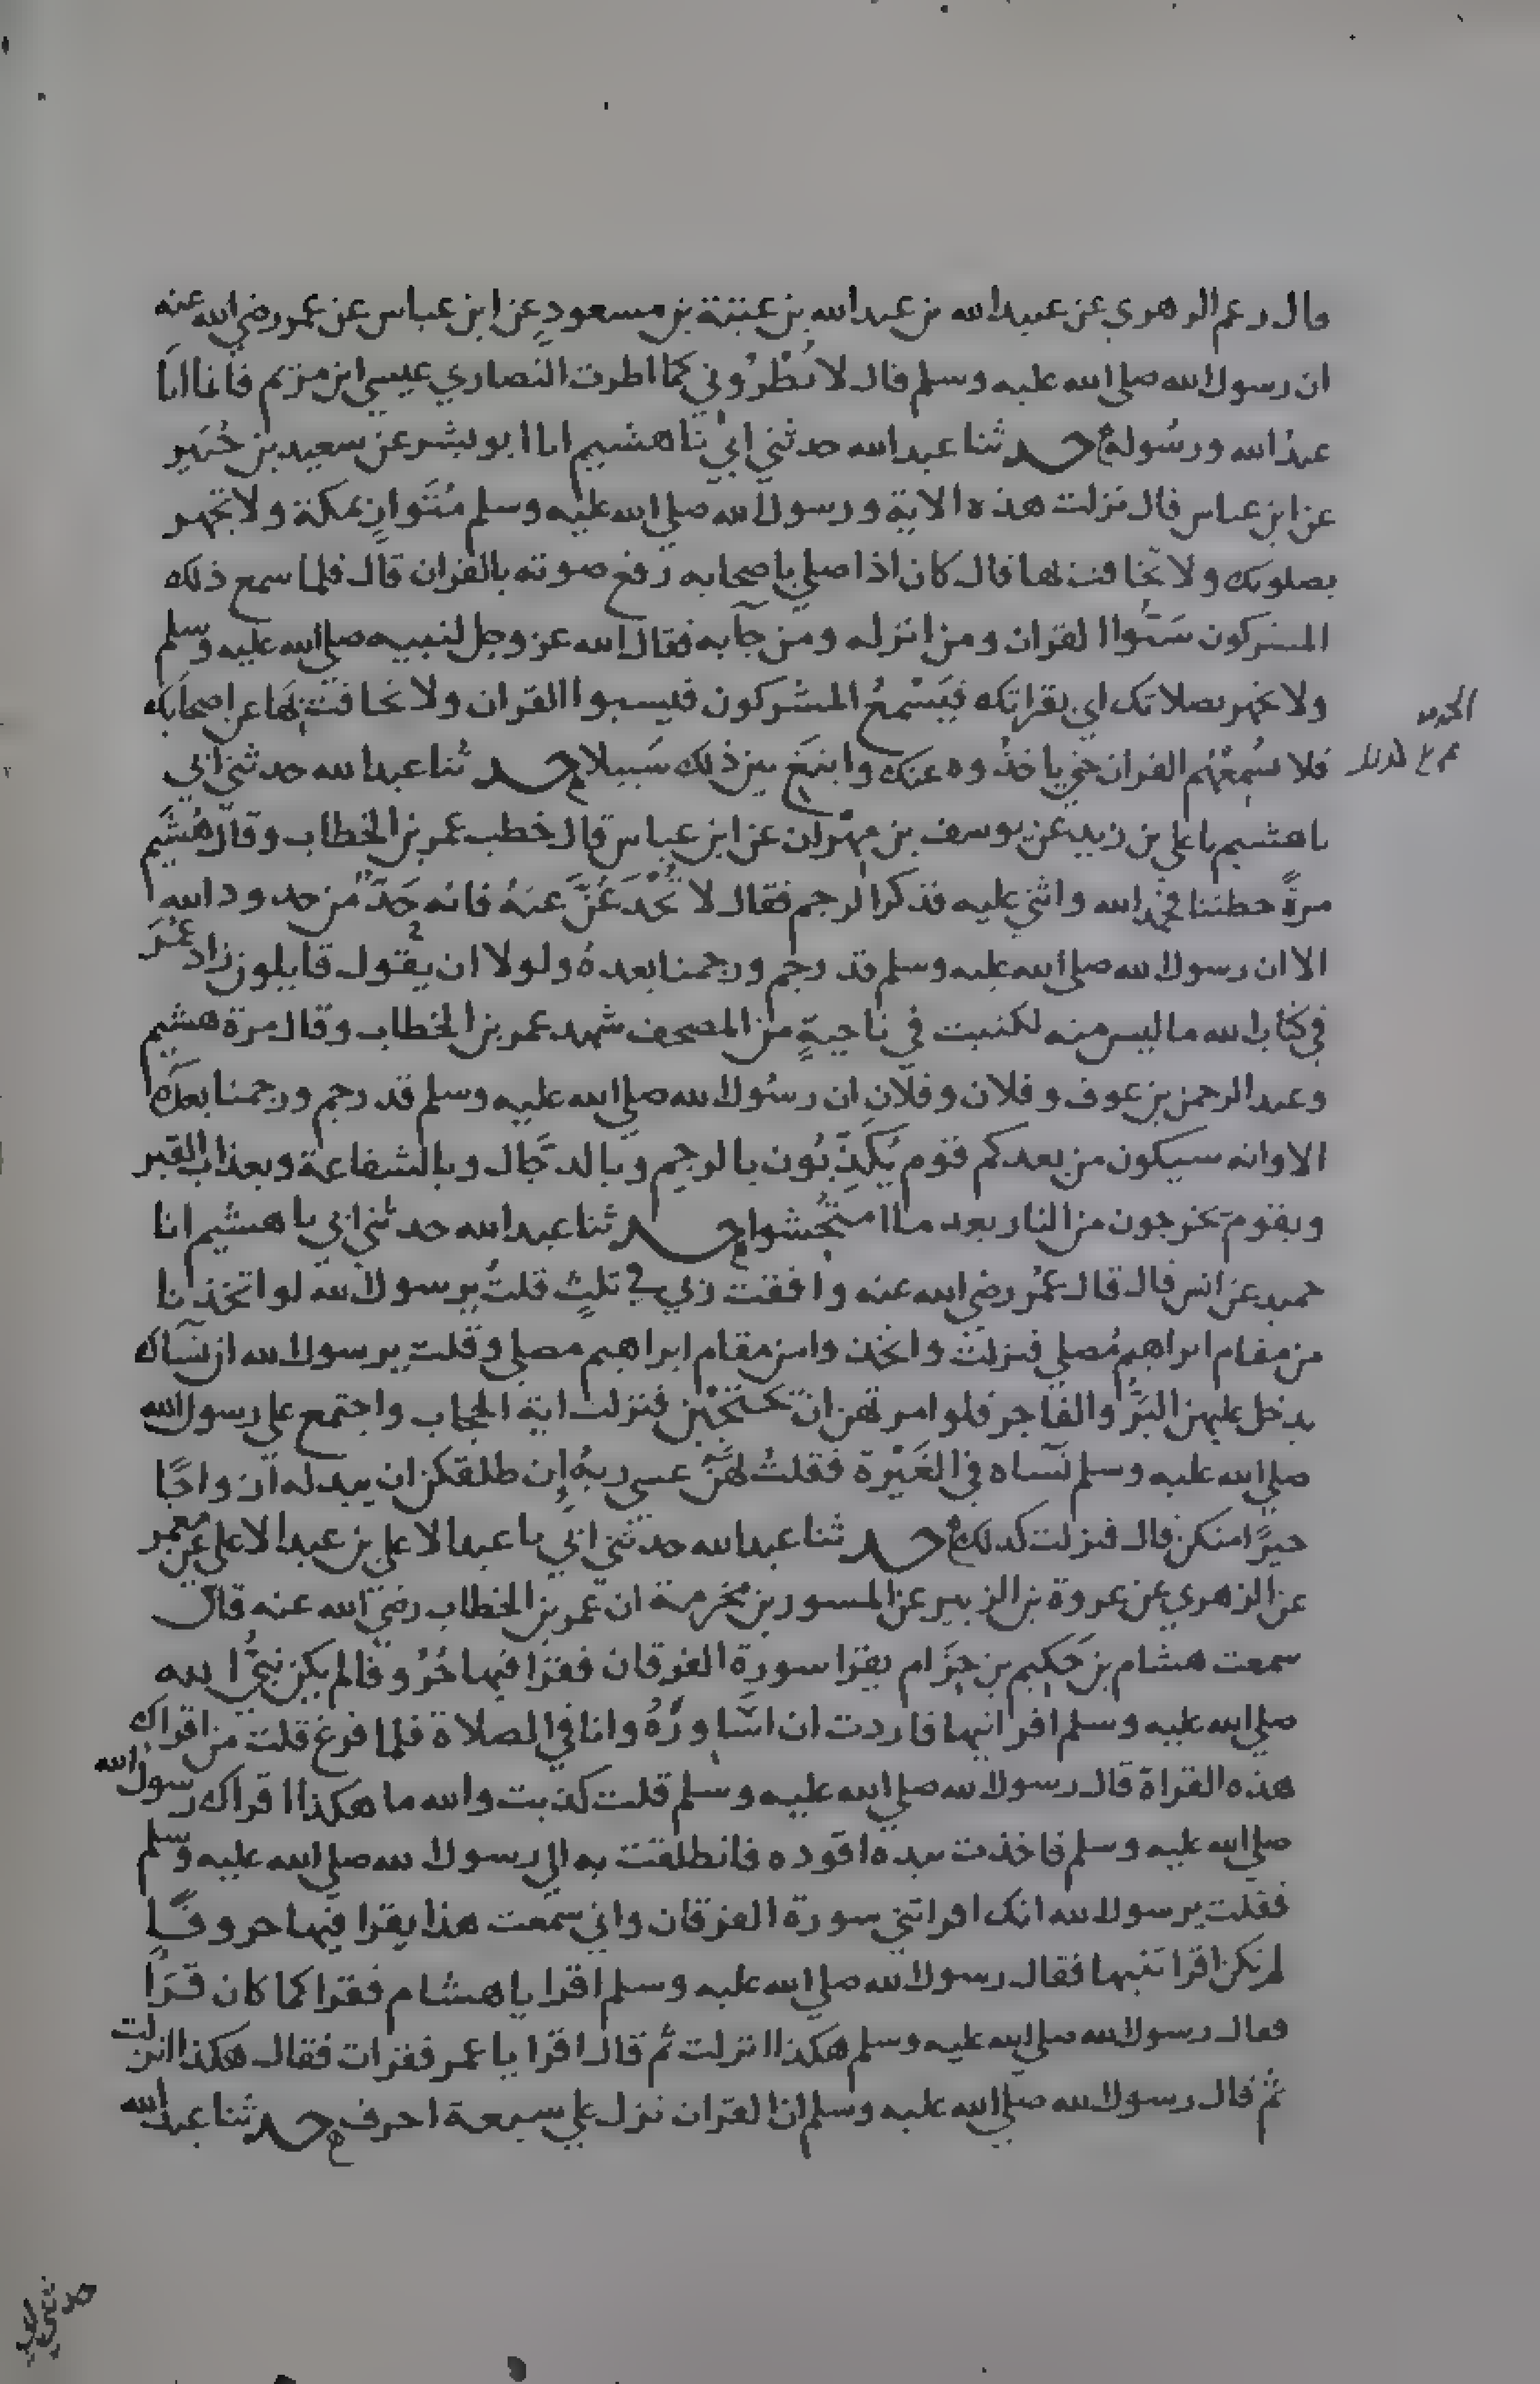 قال زعم الزهري عن عبيد الله بن عبد الله بن عتبة بن مسعودٍ عن ابن عباس عن عمر رضي الله عنه
ان رسول الله صلي الله عليه وسلم قال لا تُطْرُوني كما اطرت النصاري عيسي ابن مريم فانما انا
عبدُ الله ورسُولهُ حدثنا عبد الله حدثني ابي نا هشيم انا ابو بشر عن سعيد بن جُبَير
عن ابن عباس قال نزلت هذه الاية ورسول الله صلي الله عليه وسلم مُتَوارٍ بمكة ولا تجهر
بصلوتك ولا تخافت بها قال كان اذا صلي باصحابه رفع صوته بالقران قال فلما سمع ذلك
المشركون سَبُّوا القران ومن انزله ومن جآ به فقال الله عز وجل لنبيه صلي الله عليه وسلم
ولا تجهر بصلاتك اي بقراتك فيَسْمعُ المشركون فيسبوا القران ولا تخافت بها عن اصحابك
فلا تُسْمِعُهُم القران حتي ياخذُوه عنك وابتغ بين ذلك سَبيلا حدثنا عبد الله حدثني ابي
نا هشيم نا علي بن زيد عن يوسف بن مِهْران عن ابن عباس قال خطب عمر بن الخطاب وقال هُشَيم
مرةً خطبنا فحمد الله واثني عليه فذكر الرجم فقال لا تُخْدَعُنَّ عنهُ فانه حَدٌّ من حدود الله
الا ان رسول الله صلي الله عليه وسلم قد رجم ورجمنا بعدهُ ولولا ان يقول قايلون زاد عُمَرُ
في كتاب الله ما ليس منه لكتبت في ناحيةٍ من المصحف شهد عمر بن الخطاب وقال مرة هشيم
وعبد الرحمن بن عوف وفلان وفلان ان رسُول الله صلي الله عليه وسلم قد رجم ورجمنا بعدهُ
الا وانه سيكون من بعدكم قوم يُكَذِّبُون بالرجم وبالدجَّال وبالشفاعة وبعذاب القبر
وبقوم يخرجون من النار بعد ما امتُحِشوا حدثنا عبد الله حدثني ابي نا هشيم انا
حميد عن انس قال قال عُمر رضي الله عنه وافقت ربي في ثلثٍ قلتُ يرسول الله لو اتخذنا
من مقام ابراهيم مُصلي فنزلت واتخذوا من مقام ابراهيم مصلي وقلت يرسول الله ان نسآك
يدخل عليهن البَرُّ والفاجر فلو امرتهن ان يحتجبْن فنزلت اية الحجاب واجتمع علي رسول الله
صلي الله عليه وسلم نسآه في الغَيْرة فقلتُ لهنَّ عسي ربهُ إن طلقكن ان يبدله ازواجًا
خيرًا منكن قال فنزلت كذلك حدثنا عبد الله حدثني ابي نا عبد الاعلي بن عبد الاعلي عن معمر
عن الزهري عن عروة بن الزبير عن المسور بن مخرمة ان عمر بن الخطاب رضي الله عنه قال
سمعت هشام بن حَكِيم بن حِزَام يقرا سورة الفرقان فقرا فيها حُرُوفا لم يكن نبيُّ الله
صلي الله عليه وسلم اقرانيها فاردت ان اسَاورَهُ وانا في الصلاة فلما فرغ قلت من اقراك
هذه القراة قال رسول الله صلي الله عليه وسلم قلت كذبت والله ما هكذا اقراك رسول الله
صلي الله عليه وسلم فاخذت بيده اقوده فانطلقت به الي رسول الله صلي الله عليه وسلم
فقلت يرسول الله انك اقراتني سورة الفرقان واني سمعت هذا يقرا فيها حروفًا
لم تكن اقراتنيها فقال رسول الله صلي الله عليه وسلم اقرا يا هشام فقرا كما كان قَرَاَ
فقال رسول الله صلي الله عليه وسلم هكذا انزلت ثم قال اقرا يا عمر فقرات فقال هكذا انزلت
ثم قال رسول الله صلي الله عليه وسلم ان القران نزل علي سبعة احرف حدثنا عبد الله
حدثني ابي